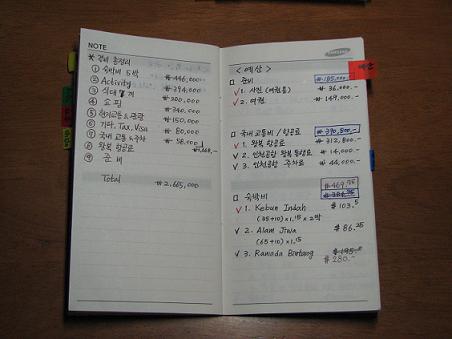 NOTE
* 경비 총정리
① 숙박비 5박 ₩446,000
② Activity ₩394,000
③ 식대
④ 쇼핑 ₩200,000
⑤ 현지교통 & 관광 ₩340,000
⑥ 기타, Tax, Visa ₩150,000
⑦ 국내 교통 & 주차 ₩80,000
⑧ 왕복 항공료 ₩58,000
⑨ 준비
Total ₩2,665,000
SAMSUNG
<예산>
예산
□ 준비 ₩185,000.-
✓ 1. 사진 (여권용) ₩36,000.-
✓ 2. 여권 ₩149,000.-
□ 국내교통비 / 항공료 ₩370,800.-
✓ 1. 왕복 항공료 ₩312,800.-
✓ 2. 인천공항 왕복 통행료 ₩14,000.-
✓ 3. 인천공항 주차료 ₩44,000.-
□ 숙박비 $469.75
✓ 1. Kebun Indah $103.5
(35+10)×1.15 × 2박
✓ 2. Alam Jiwa $86.25
(65+10)×1.15
✓ 3. Ramada Bintang $195.-
$280.-